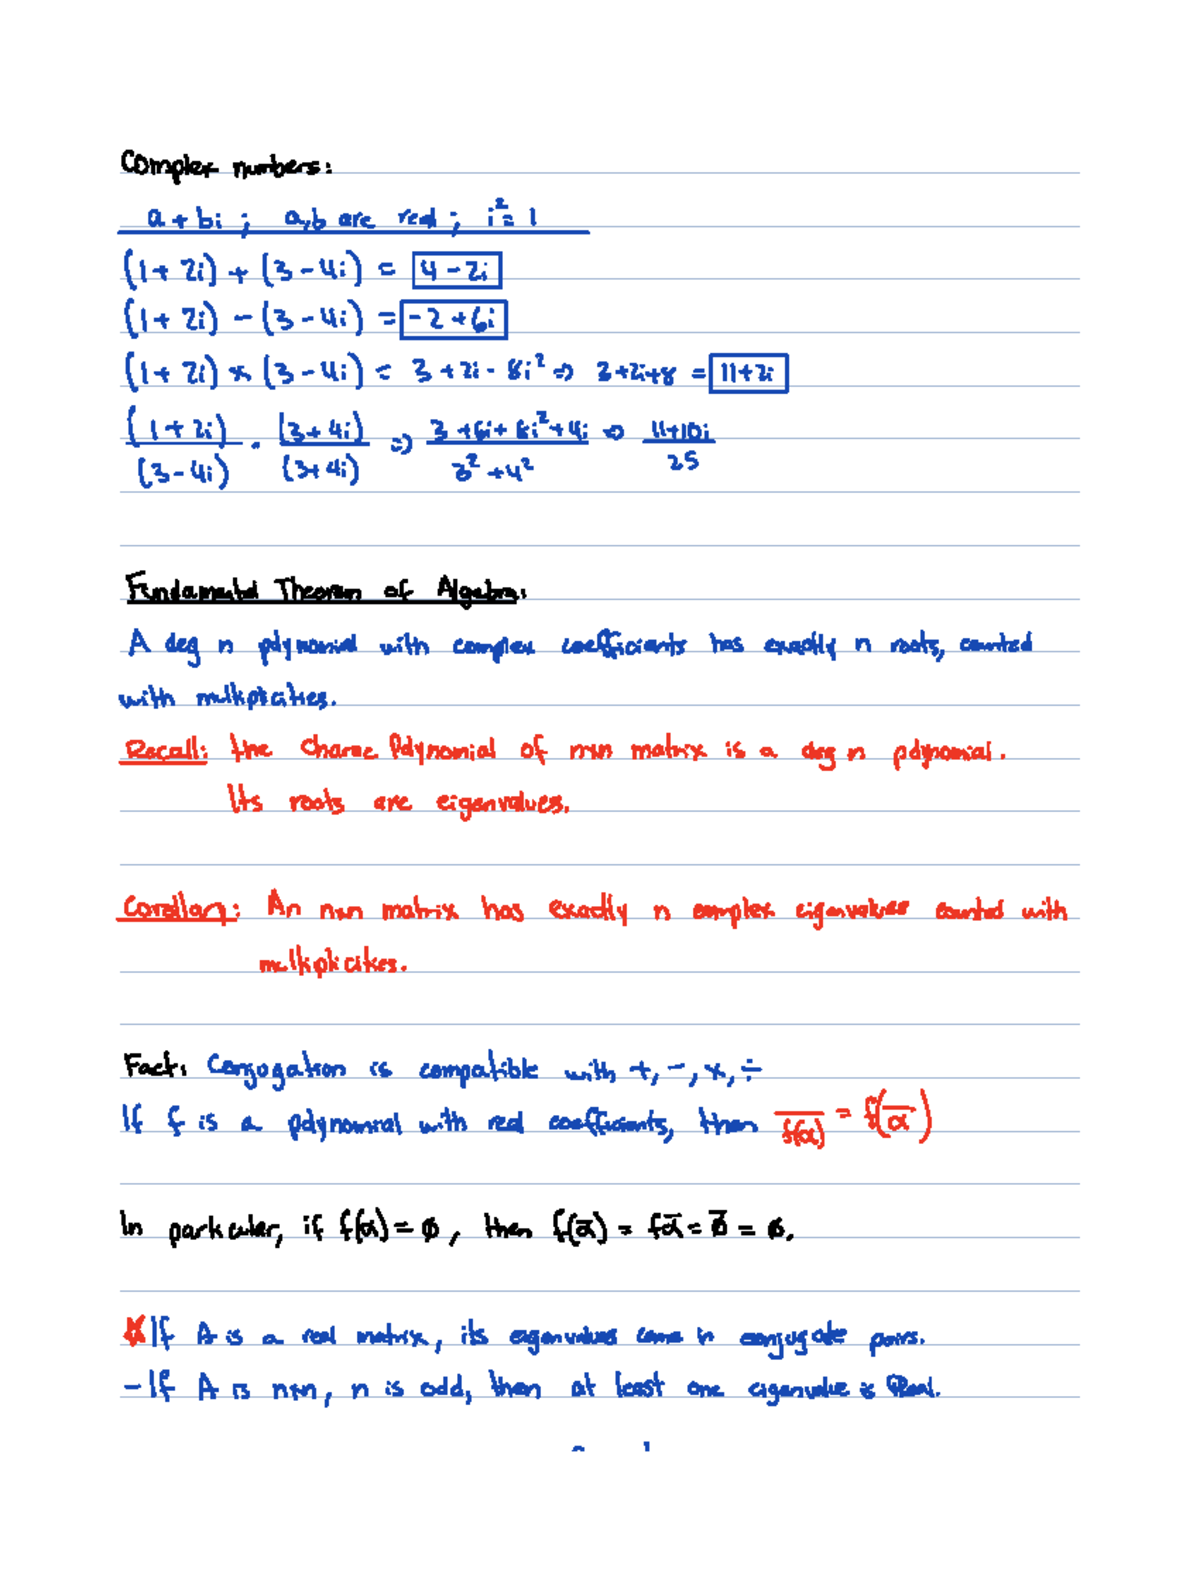 Complex numbers:
a + bi ; a,b are real ; i² = 1
(1 + 2i) + (3 - 4i) = 4 - 2i
(1 + 2i) - (3 - 4i) = -2 + 6i
(1 + 2i) × (3 - 4i) = 3 + 2i - 8i² => 3+2i+8 = 11+2i
(1 + 2i)/(3 - 4i) · (3 + 4i)/(3+4i) => (3 + 6i + 8i² + 4i)/(3² + 4²) => (11+10i)/25
Fundamental Theorem of Algebra:
A deg n polynomial with complex coefficients has exactly n roots, counted
with multiplicities.
Recall: the Charac Polynomial of n×n matrix is a deg n polynomial.
Its roots are eigenvalues.
Corollary: An n×n matrix has exactly n complex eigenvalues counted with
multiplicities.
Fact: Conjogation is compatible with +, -, ×, ÷
If f is a polynomial with real coefficients, then \overline{f(α)} = f(\overline{α})
In particular, if f(α) = 0, then f(\overline{α}) = f\overline{α} = \overline{0} = 0.
If A is a real matrix, its eigenvalues come in conjugate pairs.
- If A is n×n, n is odd, then at least one eigenvalue is Real.